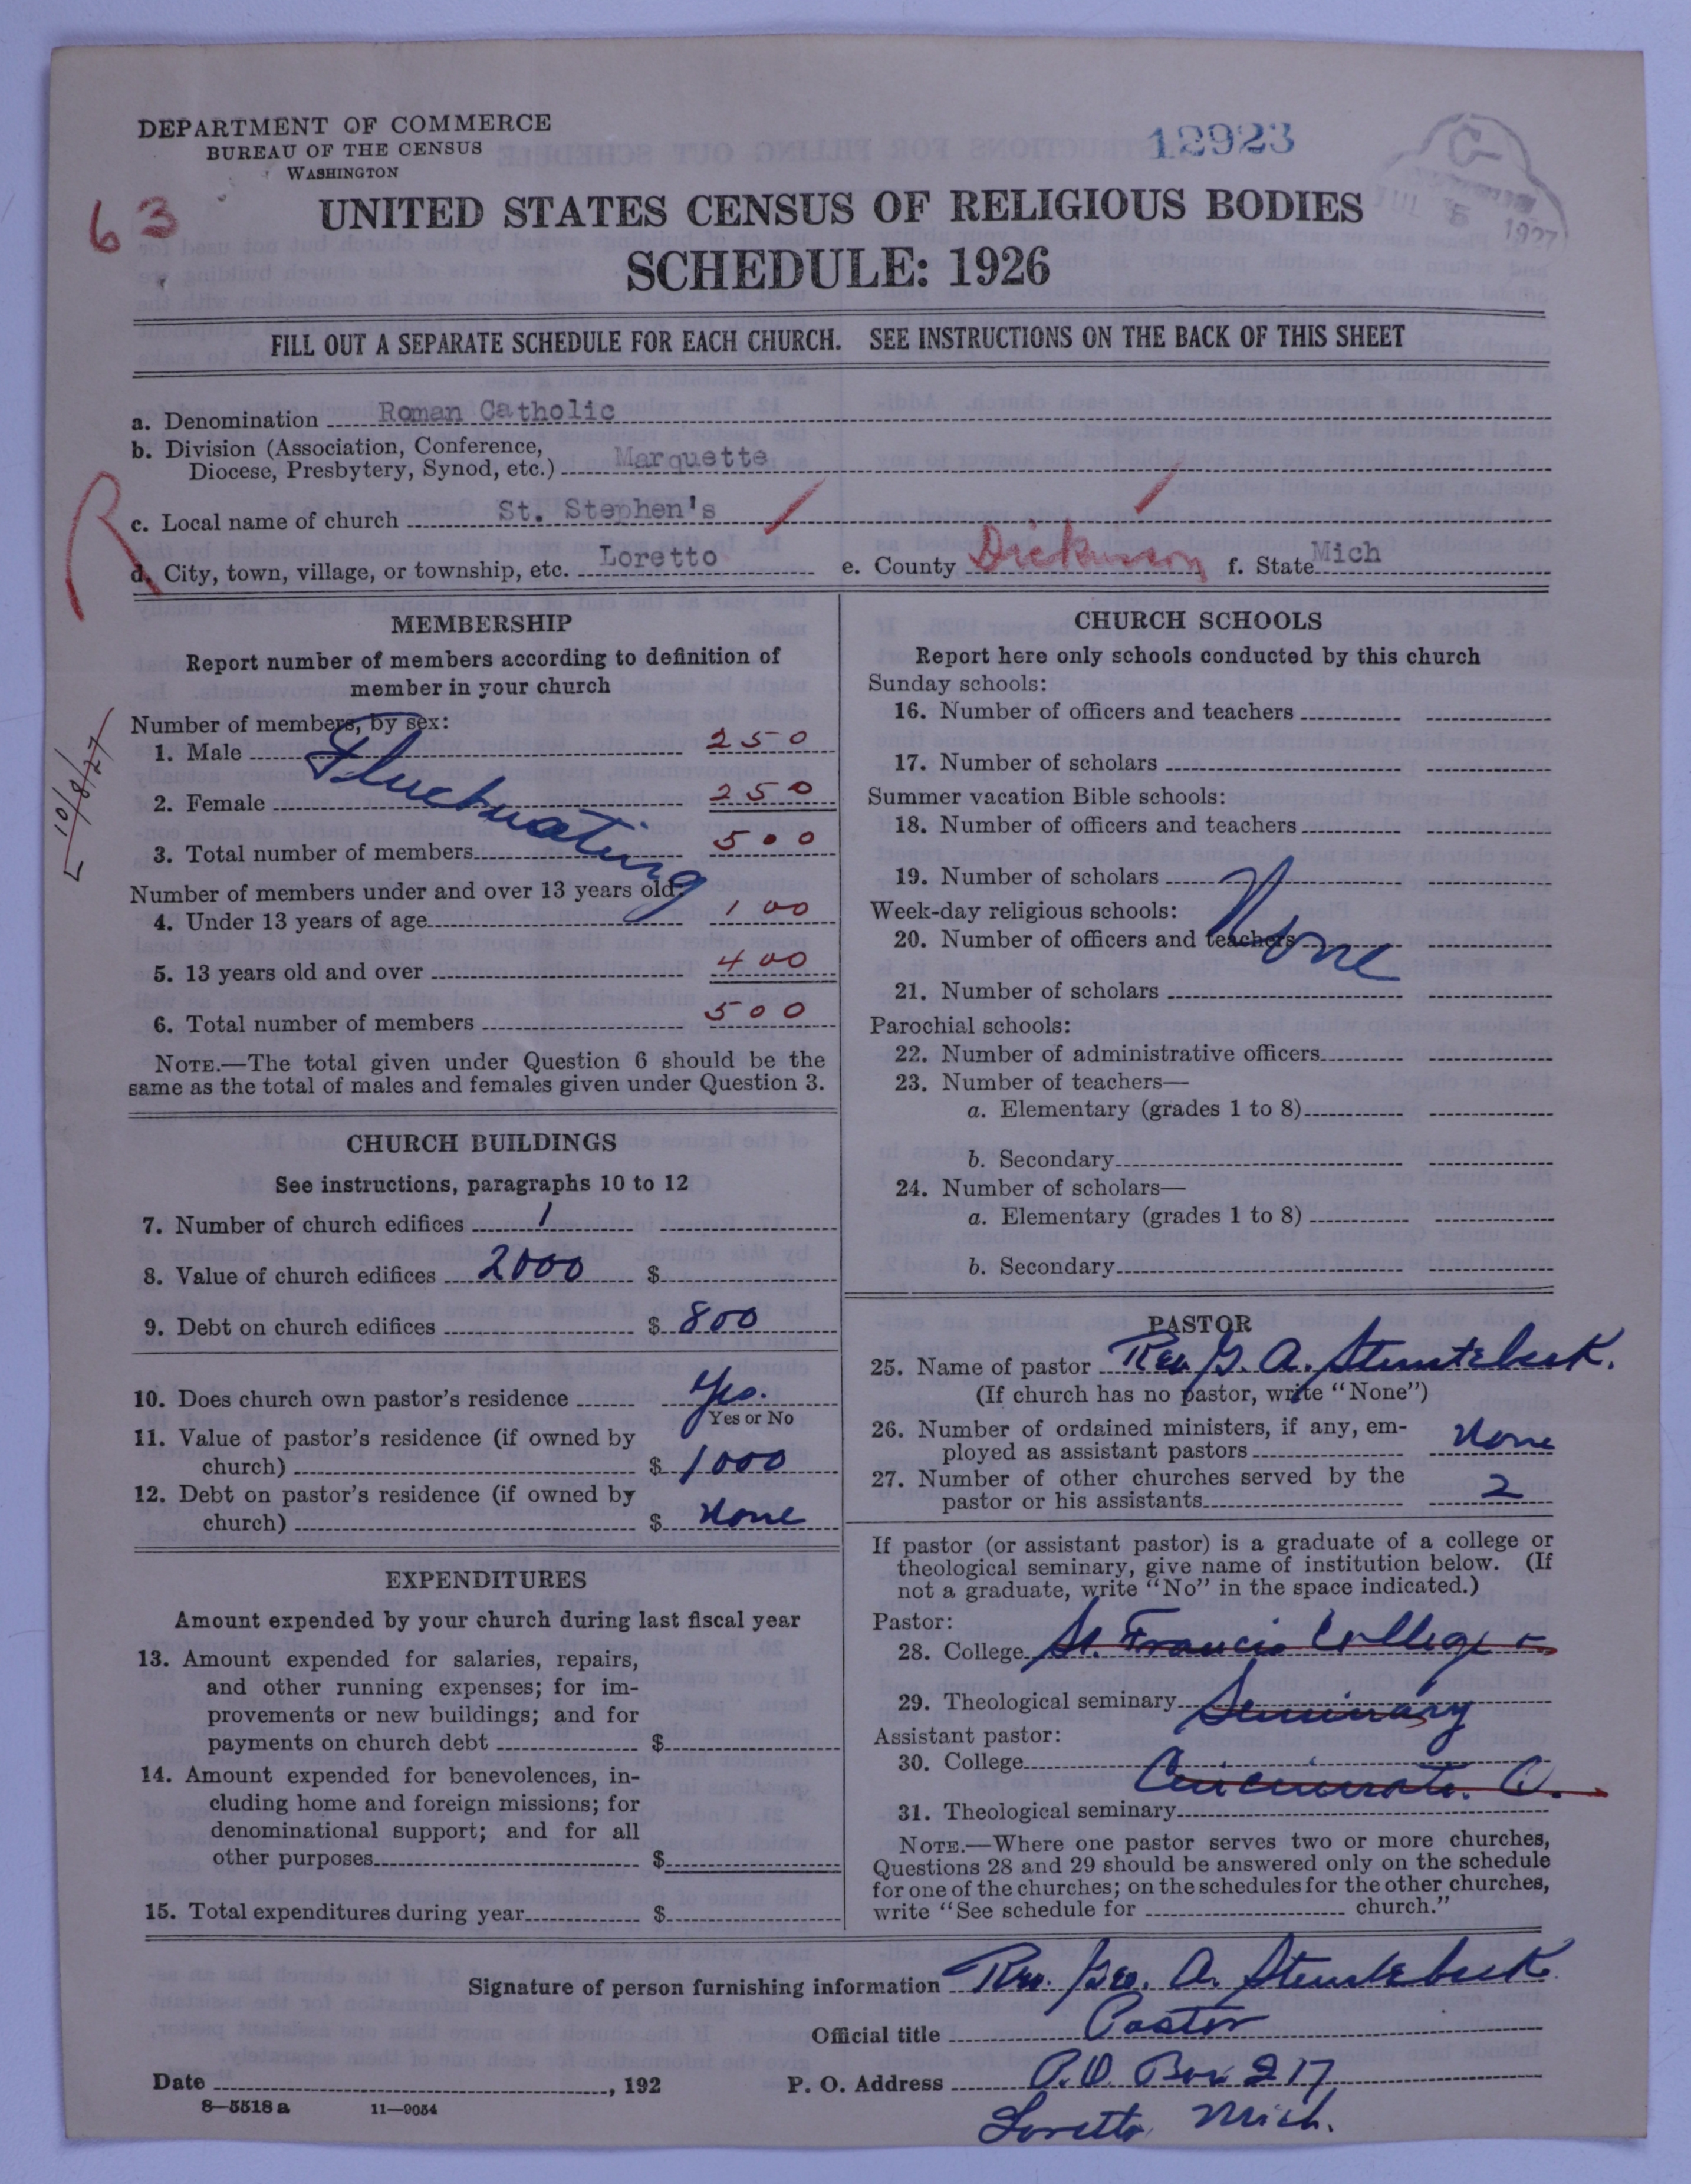 DEPARTMENT OF COMMERCE
BUREAU OF THE CENSUS
WASHINGTON
12923
1927
63
UNITED STATES CENSUS OF RELIGIOUS BODIES
SCHEDULE: 1926
FILL OUT A SEPARATE SCHEDULE FOR EACH CHURCH. SEE INSTRUCTIONS ON THE BACK OF THIS SHEET
a. Denomination Roman Catholic
b. Division (Association, Conference,
Diocese, Presbytery, Synod, etc.) Marquette
R
c. Local name of church St. Stephen's
d. City, town, village, or township, etc. Loretto e. County Dickinson f. State Mich
MEMBERSHIP
Report number of members according to definition of
member in your church
10/8/27
Number of members, by sex:
1. Male 250
Fluctuating
2. Female 250
3. Total number of members 500
Number of members under and over 13 years old:
4. Under 13 years of age 100
5. 13 years old and over 400
6. Total number of members 500
NOTE.—The total given under Question 6 should be the
same as the total of males and females given under Question 3.
CHURCH BUILDINGS
See instructions, paragraphs 10 to 12
7. Number of church edifices 1
8. Value of church edifices 2000 $
9. Debt on church edifices $ 800
10. Does church own pastor's residence Yes.
Yes or No
11. Value of pastor's residence (if owned by
church) $ 1000
12. Debt on pastor's residence (if owned by
church) $ None
EXPENDITURES
Amount expended by your church during last fiscal year
13. Amount expended for salaries, repairs,
and other running expenses; for im-
provements or new buildings; and for
payments on church debt $
14. Amount expended for benevolences, in-
cluding home and foreign missions; for
denominational support; and for all
other purposes $
15. Total expenditures during year $
CHURCH SCHOOLS
Report here only schools conducted by this church
Sunday schools:
16. Number of officers and teachers
17. Number of scholars
Summer vacation Bible schools:
18. Number of officers and teachers
19. Number of scholars
None
Week-day religious schools:
20. Number of officers and teachers
21. Number of scholars
Parochial schools:
22. Number of administrative officers
23. Number of teachers—
a. Elementary (grades 1 to 8)
b. Secondary
24. Number of scholars—
a. Elementary (grades 1 to 8)
b. Secondary
PASTOR
25. Name of pastor Rev. G. A.
(If church has no pastor, write "None")
26. Number of ordained ministers, if any, em-
ployed as assistant pastors None
27. Number of other churches served by the
pastor or his assistants 2
If pastor (or assistant pastor) is a graduate of a college or
theological seminary, give name of institution below. (If
not a graduate, write "No" in the space indicated.)
Pastor:
28. College St. Francis College
29. Theological seminary Seminary
Assistant pastor:
30. College Cincinnati. O.
31. Theological seminary
NOTE.—Where one pastor serves two or more churches,
Questions 28 and 29 should be answered only on the schedule
for one of the churches; on the schedules for the other churches,
write "See schedule for church."
Signature of person furnishing information Rev. Geo. A.
Official title Pastor
Date , 192 P. O. Address P.O. Box 217
Loretto Mich.
8—5518a 11—9054